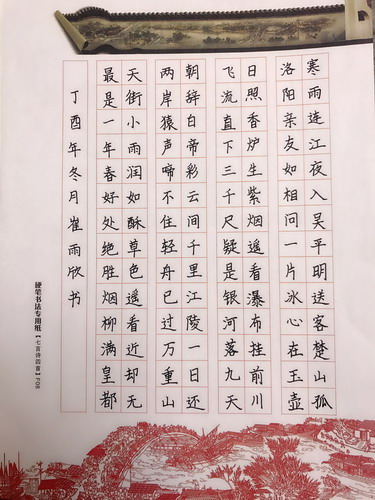 寒雨连江夜入吴平明送客楚山孤
洛阳亲友如相问一片冰心在玉壶
日照香炉生紫烟遥看瀑布挂前川
飞流直下三千尺疑是银河落九天
朝辞白帝彩云间千里江陵一日还
两岸猿声啼不住轻舟已过万重山
天街小雨润如酥草色遥看近却无
最是一年春好处绝胜烟柳满皇都
丁酉年冬月崔雨欣书
硬笔书法专用纸【七言诗四首】F08